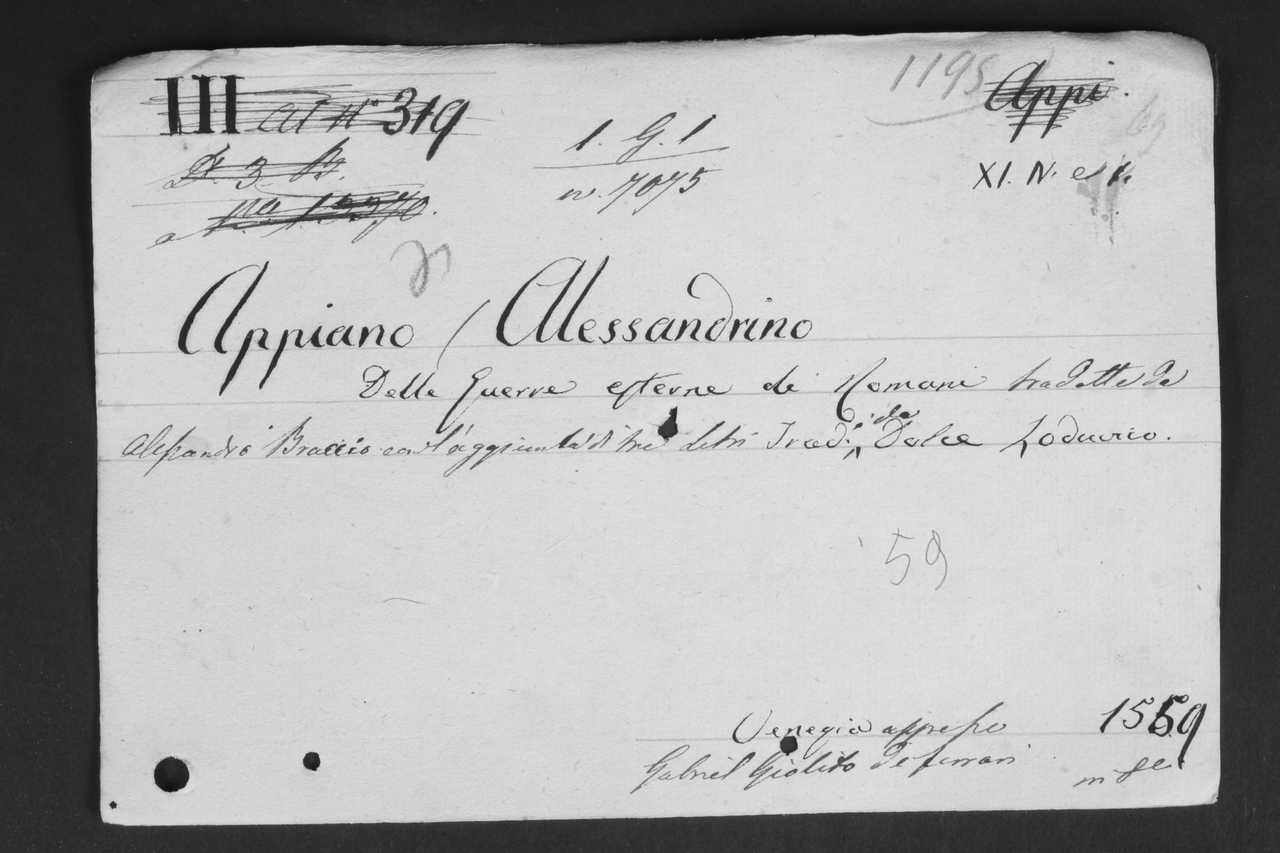 III cat nº 319
1195
Appi.
1. G. 1
n. 7075
XI. N. e 1.
Appiano / Alessandrino
Delle Guerre esterne de Romani tradotte da
Alessandro Braccio con l'aggiunta di tre libri Trad: da Dolce Loduvico.
59
Venegia appresso
1559
Gabriel Giolito De ferrari